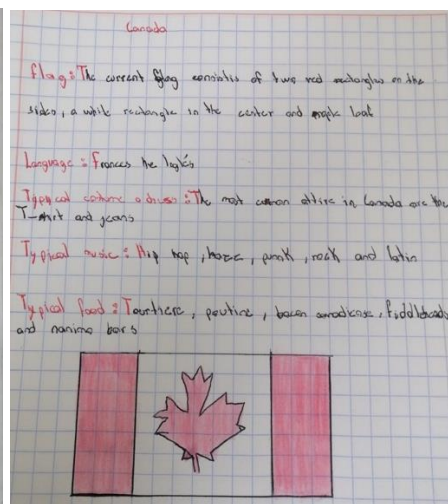 Canada
flag: The current flag consists of two red rectangles on the
sides, a white rectangle in the center and maple leaf
Language: Frances he Inglés
Typical costume o dress: The most common attire in Canada are the
T-shirt and jeans
Typical music: Hip hop, house, punk, rock and latin
Typical food: Tourtiere, poutine, bacon canadiense, fiddleheads
and nanimo bars